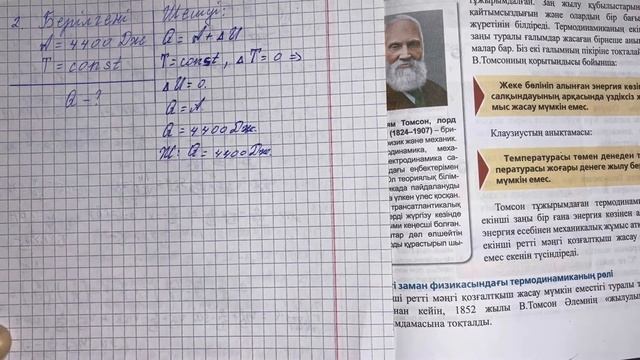 2 Берілгені
A = 4400 Дж
T = const
Q - ?
Шешуі:
Q = A + ΔU
T = const, ΔT = 0 ⇒
ΔU = 0.
Q = A
Q = 4400 Дж.
Ж: Q = 4400 Дж.
Томсон, лорд
(1824–1907) – бри-
және механик.
меха-
са-
еңбектерімен
теориялық білім-
пайдалануды
үлкен үлес қосқан.
трансатлантикалық
жүргізу кезінде
кеңесші болған.
дәл өлшейтін
құрастырып шы-
тұжырымдалған. Заң жылу құбылыстарын
қайтымсыздығын және олардың бір бағы
жүретінін білдіреді. Термодинамиканың екін
заңы туралы ғалымдар жасаған бірнеше анық
малар бар. Біз екі ғалымның пікіріне тоқталай
В.Томсонның қорытындысы бойынша:
Жеке бөлініп алынған энергия көзін
салқындауының арқасында үздіксіз ж
мыс жасау мүмкін емес.
Клаузиустың анықтамасы:
Температурасы төмен денеден т
пературасы жоғары денеге жылу бе
мүмкін емес.
Томсон тұжырымдаған термодинами
екінші заңы бір ғана энергия көзінен а
энергия есебінен механикалық жұмыс атқ
екінші ретті мәңгі қозғалтқыш жасау м
емес екенін түсіндіреді.
заман физикасындағы термодинамиканың рөлі
ретті мәңгі қозғалтқыш жасау мүмкін еместігі туралы т
кейін, 1852 жылы В.Томсон Әлемнің «жылулы
тоқталды.